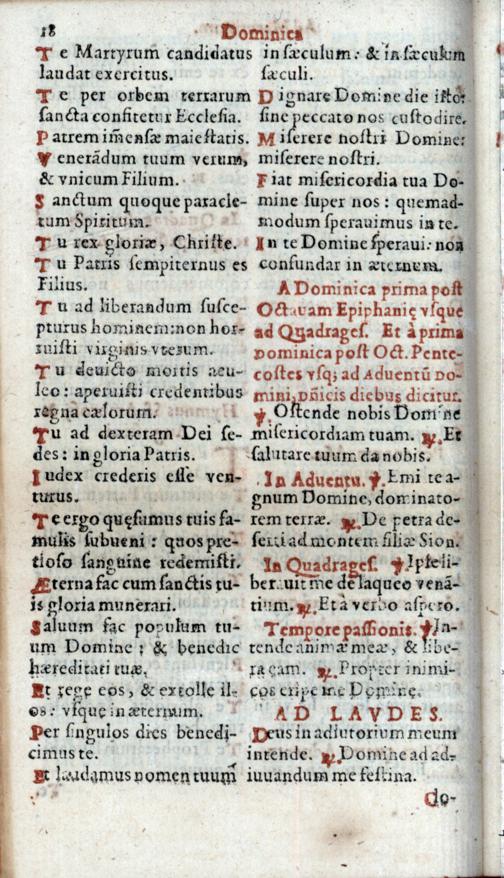 18
Dominica
Te Martyrum candidatus
laudat exercitus.
Te per orbem terrarum
sancta confitetur Ecclesia.
Patrem im̃ensæ maiestatis.
Venerādum tuum verum,
& vnicum Filium.
Sanctum quoque paracle-
tum Spiritum.
Tu rex gloriæ, Christe.
Tu Patris sempiternus es
Filius.
Tu ad liberandum susce-
pturus hominem: non hor-
ruisti virginis vterum.
Tu deuicto mortis acu-
leo: aperuisti credentibus
regna cælorum.
Tu ad dexteram Dei se-
des: in gloria Patris.
Iudex crederis esse ven-
turus.
Te ergo quęsumus tuis fa-
mulis subueni: quos pre-
tioso sanguine redemisti.
Æterna fac cum sanctis tu-
is gloria munerari.
Saluum fac populum tu-
um Domine: & benedic
hæreditati tuæ.
Et rege eos, & extolle il-
os: vsque in æternum.
Per singulos dies benedi-
cimus te.
Et laudamus nomen tuum
in sæculum: & in sæculum
sæculi.
Dignare Domine die isto:
sine peccato nos custodire.
Miserere nostri Domine:
miserere nostri.
Fiat misericordia tua Do-
mine super nos: quemad-
modum sperauimus in te.
In te Domine speraui: non
confundar in æternum.
A Dominica prima post
Octauam Epiphanię vsque
ad Quadrages. Et à prima
Dominica post Oct. Pente-
costes vsq; ad Aduentū Do-
mini, dn̄icis diebus dicitur.
℣. Ostende nobis Domine
misericordiam tuam. ℟. Et
salutare tuum da nobis.
In Aduentu. ℣. Emitte a-
gnum Domine, dominato-
rem terræ. ℟. De petra de-
serti ad montem filiæ Sion.
In Quadrages. ℣. Ipse li-
berauit me de laqueo venā-
tium. ℟. Et à verbo aspero.
Tempore passionis. ℣. In-
tende animæ meæ, & libe-
ra eam. ℟. Propter inimi-
cos eripe me Domine.
AD LAVDES.
Deus in adiutorium meum
intende. ℟. Domine ad ad-
iuuandum me festina.
do-